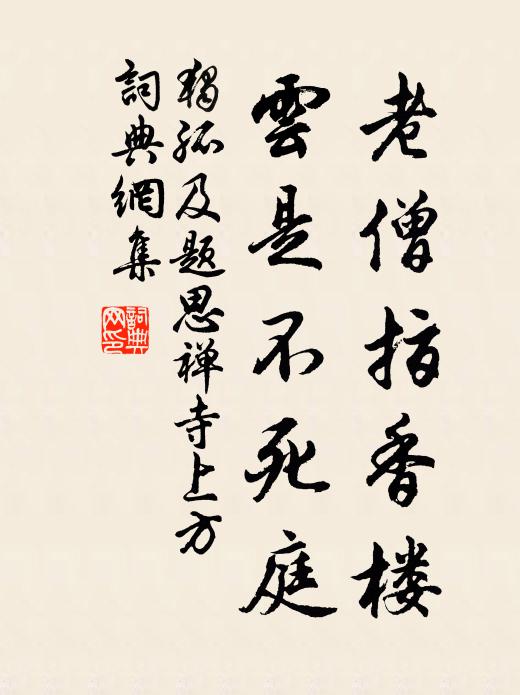 老僧指香楼
雲是不死庭
獨孤及题思禅寺上方
詞典網集
詞典
网印